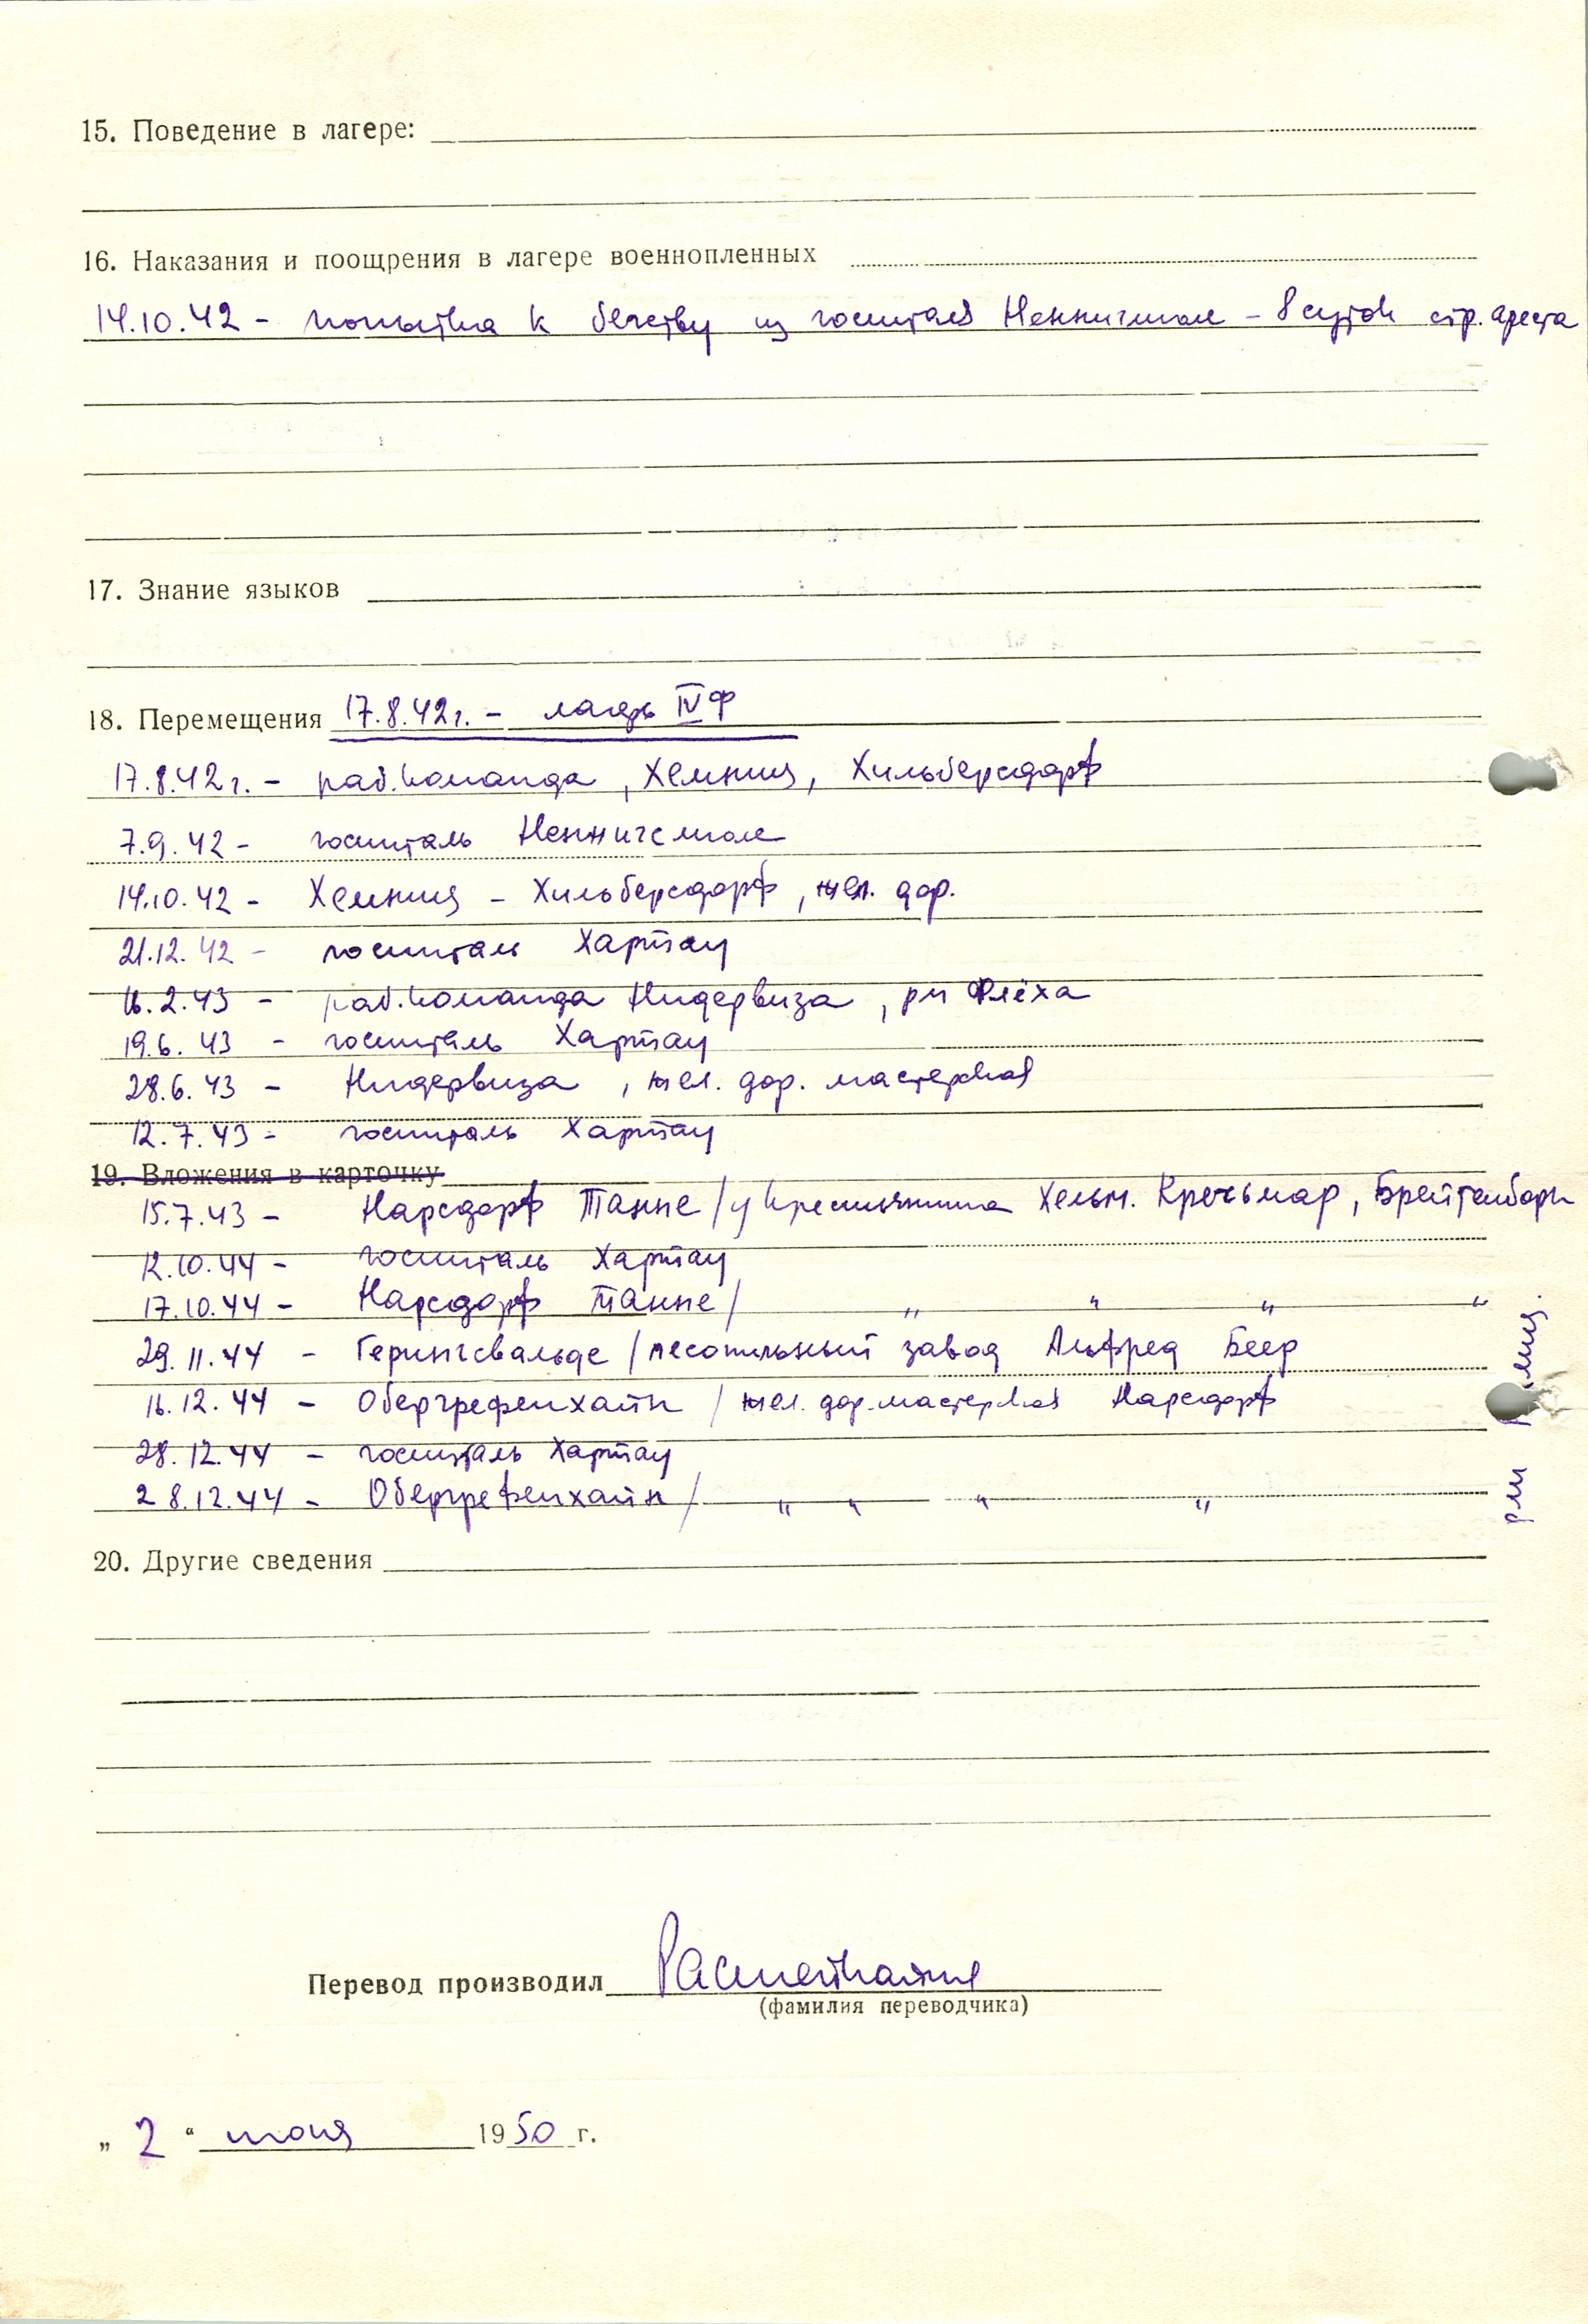 15. Поведение в лагере:
16. Наказания и поощрения в лагере военнопленных
14.10.42 - попытка к бегству из госпиталя Неннигмюле - 8 суток стр. ареста
17. Знание языков
18. Перемещения 17.8.42г. - лагерь IVФ
17.8.42г. - раб.команда, Хемниц, Хильберсдорф
7.9.42 - госпиталь Неннигсмюле
14.10.42 - Хемниц - Хильберсдорф, жел. дор.
21.12.42 - госпиталь Хартау
16.2.43 - раб.команда Нидервиза, рн Флёха
19.6.43 - госпиталь Хартау
28.6.43 - Нидервиза, жел. дор. мастерская
12.7.43 - госпиталь Хартау
19. Вложения в карточку
15.7.43 - Нарсдорф Танне / у крестьянина Хельм. Кречьмар, Брейтенборн
12.10.44 - госпиталь Хартау
17.10.44 - Нарсдорф Танне / " " " "
29.11.44 - Герингсвальде / лесопильный завод Альфред Беер
16.12.44 - Обергрефенхайн / жел. дор. мастерская Нарсдорф
28.12.44 - госпиталь Хартау
28.12.44 - Обергрефенхайн / " " " "
рн
20. Другие сведения
Перевод производил
(фамилия переводчика)
„ 2 “ июня 1950 г.